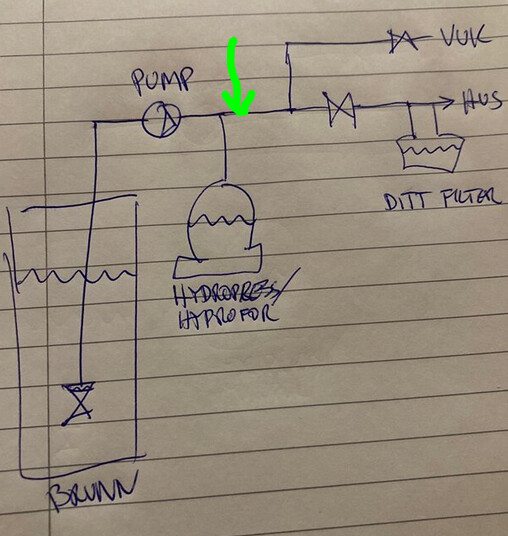 PUMP
VUK
HUS
DITT FILTER
HYDROPRESS/
HYPROFOR
BRUNN